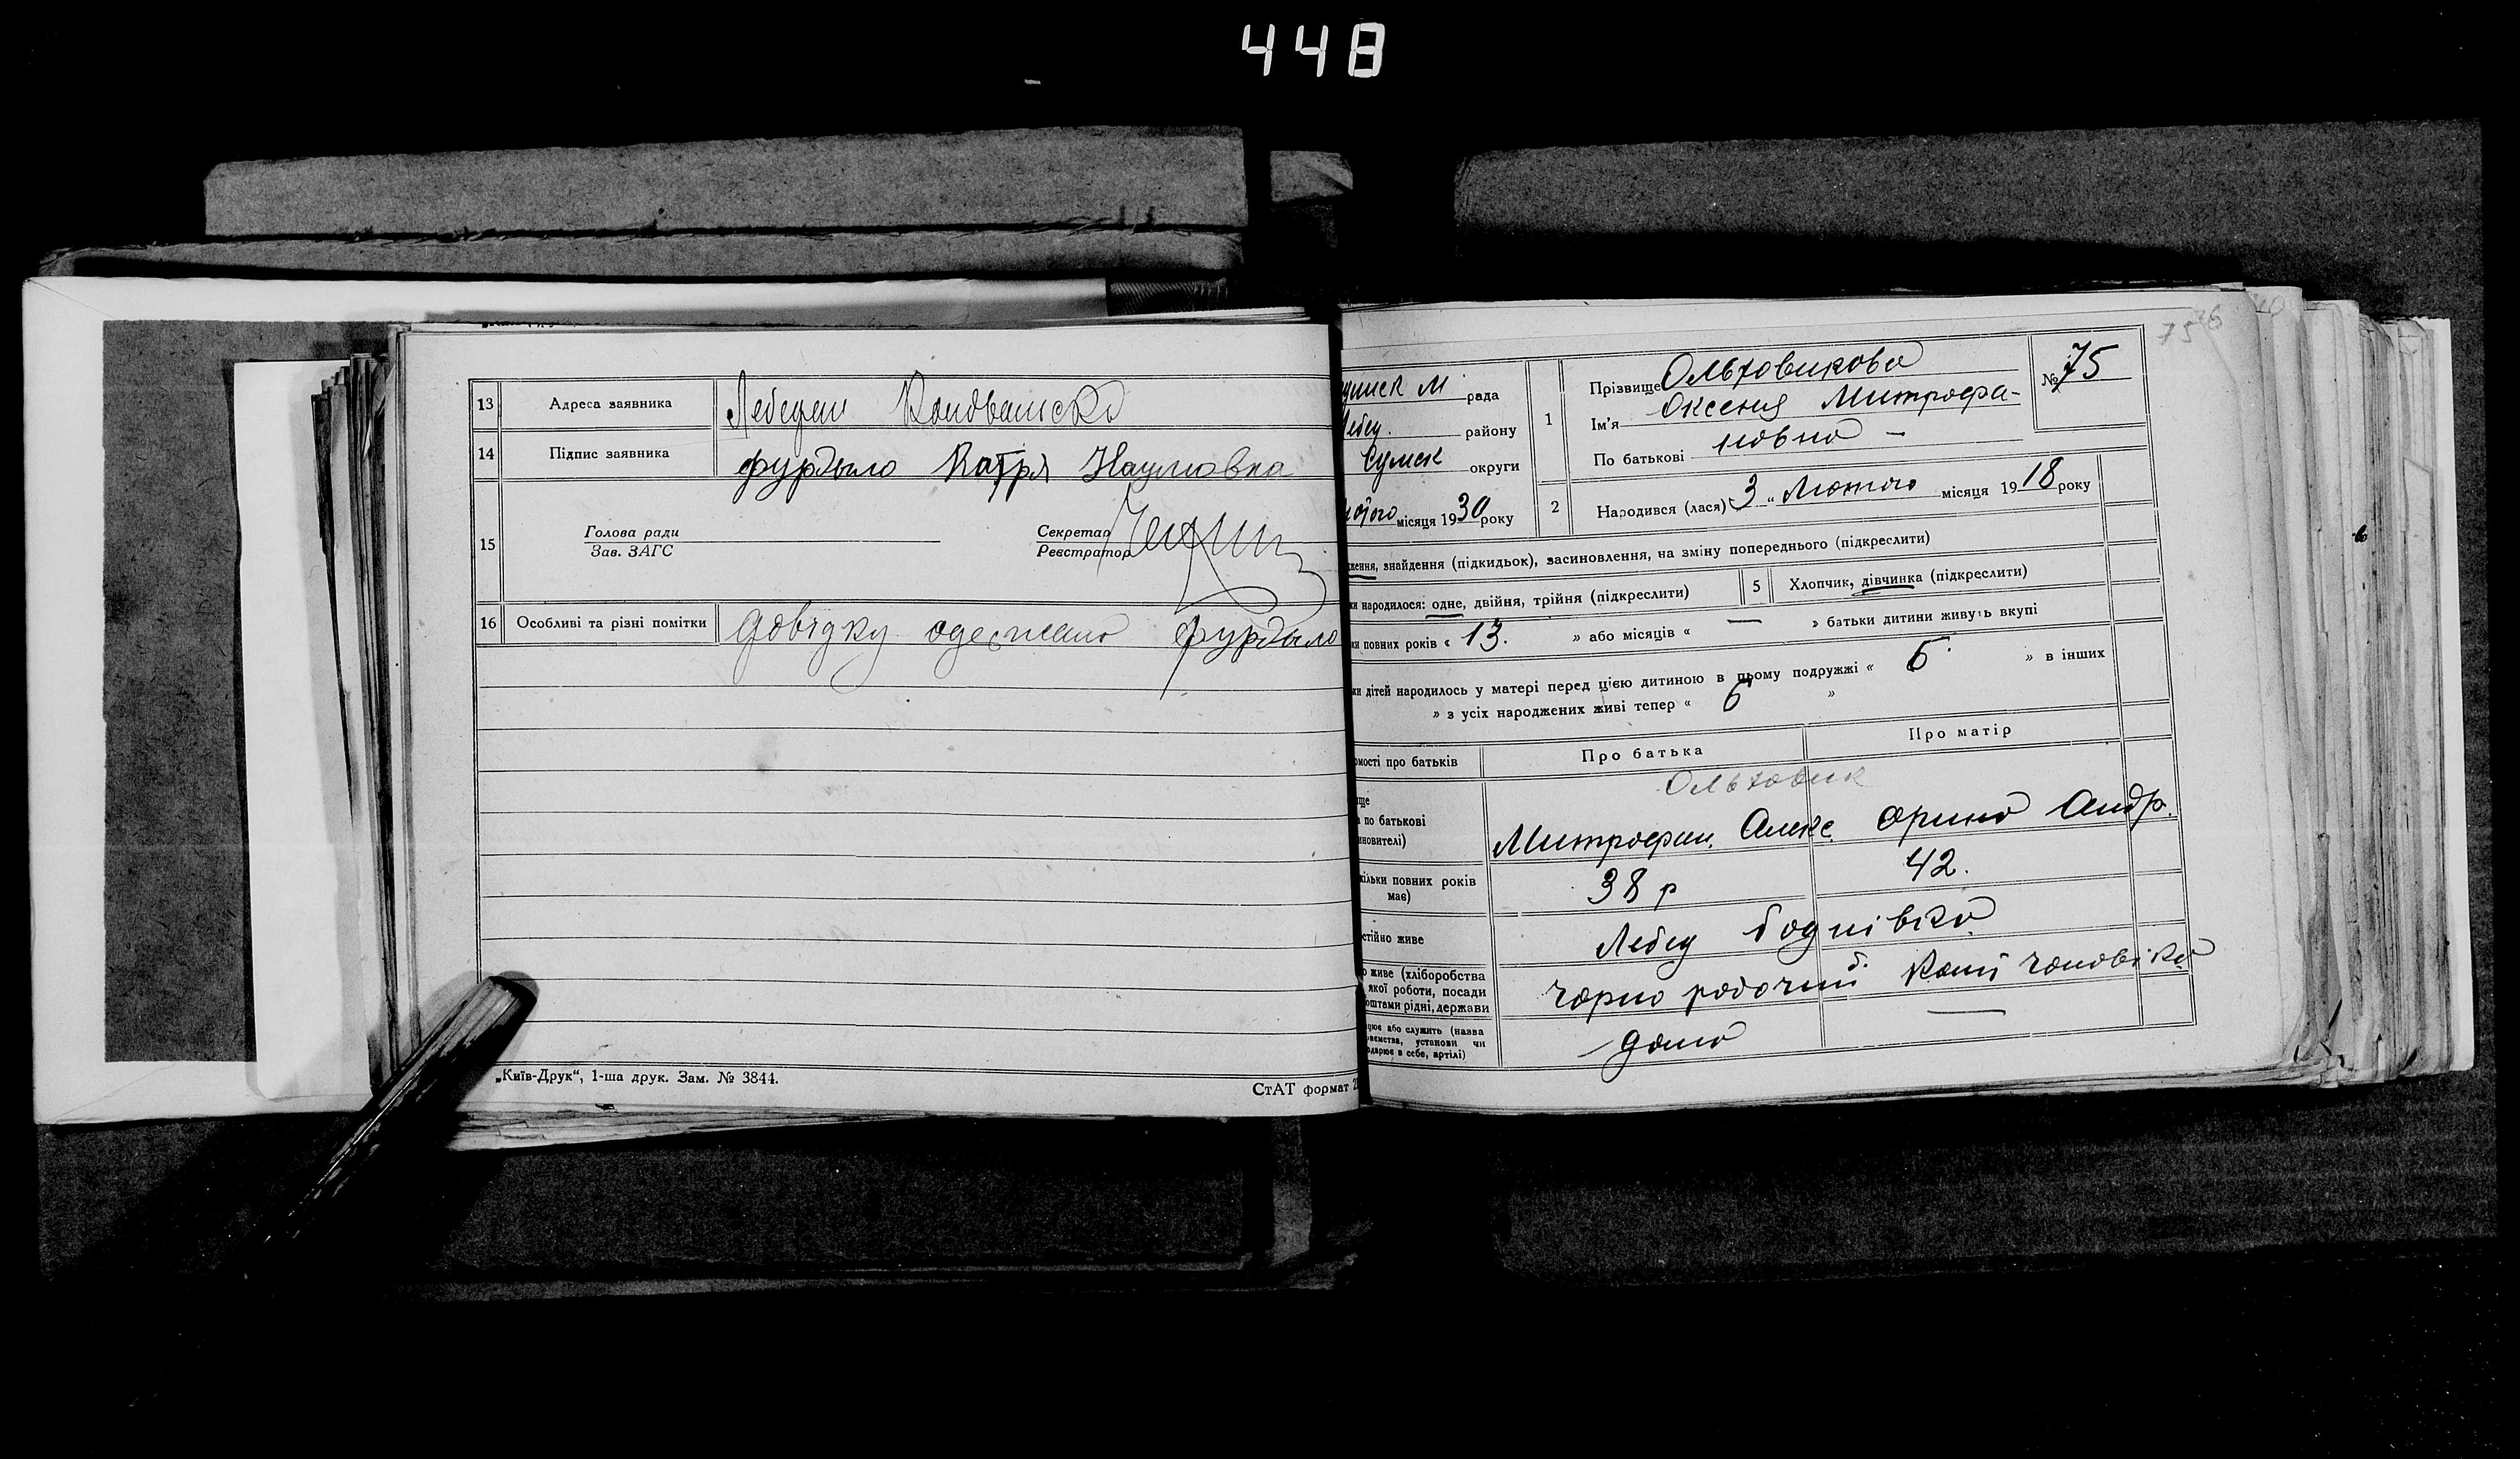 448
13 Адреса заявника Лебедин
14 Підпис заявника Фурдыло Катря Наумовна
15 Голова ради
Зав. ЗАГС
Секретар
Реєстратор
16 Особливі та різні помітки Довідку одержано Фурдыло
„Київ-Друк“, 1-ша друк. Зам. № 3844.
СтАТ формат
75
М рада
Лебед. району
Сумск округи
лютого місяця 1930 року
1 Прізвище Ольховикова
Ім’я Оксения Митрофа-
По батькові новна –
№ 75
2 Народився (лася) „3“ Лютого місяця 1918 року
ження, знайдення (підкидьок), засиновлення, на зміну попереднього (підкреслити)
ки народилося: одне, двійня, трійня (підкреслити) 5 Хлопчик, дівчинка (підкреслити)
ки повних років « 13. » або місяців « — » батьки дитини живуть вкупі
ки дітей народилось у матері перед цією дитиною в цьому подружжі « 6 » в інших
» з усіх народжених живі тепер « 6 »
омості про батьків Про батька Про матір
Ольховик
ще
а по батькові
иновителі)
Митрофан. Алекс. Орина Андр.
кільки повних років
має)
38 р 42.
стійно живе Лебед
о живе (хліборобства
якої роботи, посади
оштами рідні, держави
чорно робочий
цює або служить (назва
риємства, установи чи
одарює в себе, артілі)
дома —